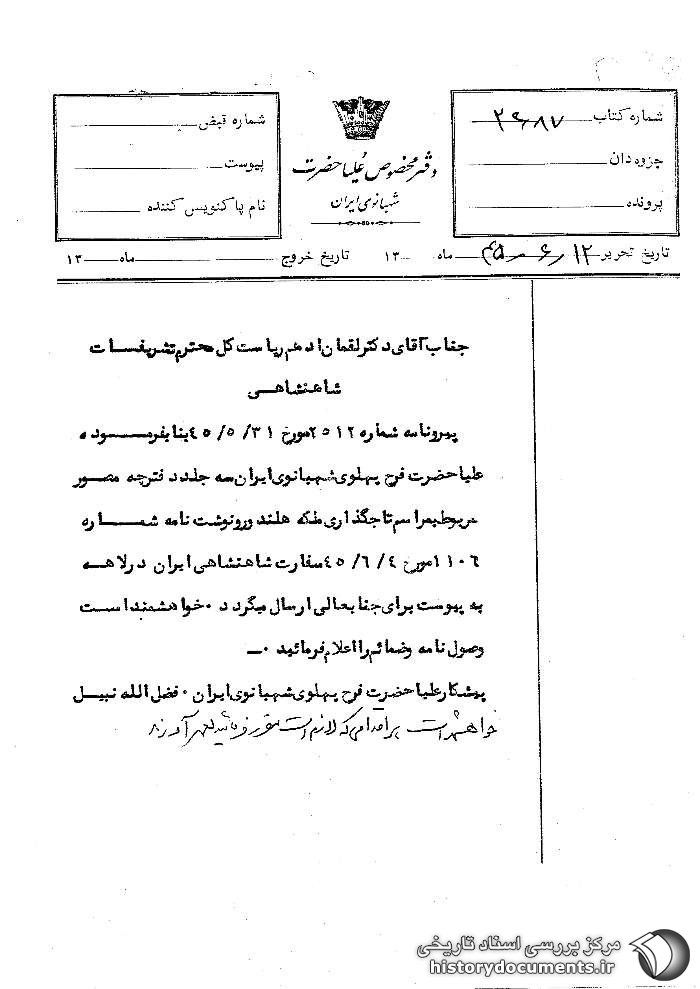 شماره کتاب ۳۹۸۷
جزوه دان
پرونده
دفتر مخصوص علیاحضرت
شهبانوی ایران
شماره قبض
پیوست
نام پاکنویس کننده
تاریخ تحریر ۱۲ ر ۶ ر ۴۵ ماه ۱۳۰۰ تاریخ خروج ماه ۱۳
جناب آقای دکتر لقمان ادهم ریاست کل محترم تشریفات
شاهنشاهی
پیرو نامه شماره ۲۵۱۲ مورخ ۳۱ /۵ /۴۵ بنا بفرموده
علیاحضرت فرح پهلوی شهبانوی ایران سه جلد دفترچه مصور
مربوط بمراسم تاجگذاری ملکه هلند و رونوشت نامه شماره
۱۱۰۶ مورخ ۴ /۶ /۴۵ سفارت شاهنشاهی ایران در لاهه
به پیوست برای جنابعالی ارسال میگردد ۰ خواهشمند است
وصول نامه وضمائم را اعلام فرمائید ۰ــ
پیشکار علیاحضرت فرح پهلوی شهبانوی ایران ۰ فضل الله نبیل
خواهشمند است هر اقدامی که لازم است مقرر فرمائید بعمل آورند
مرکز بررسی اسناد تاریخی
historydocuments.ir